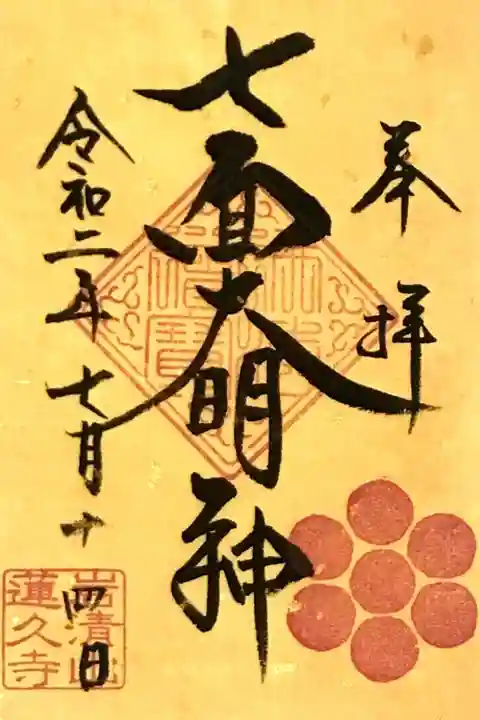 奉拝
七面大明神
令和二年七月十四日
蓮久寺